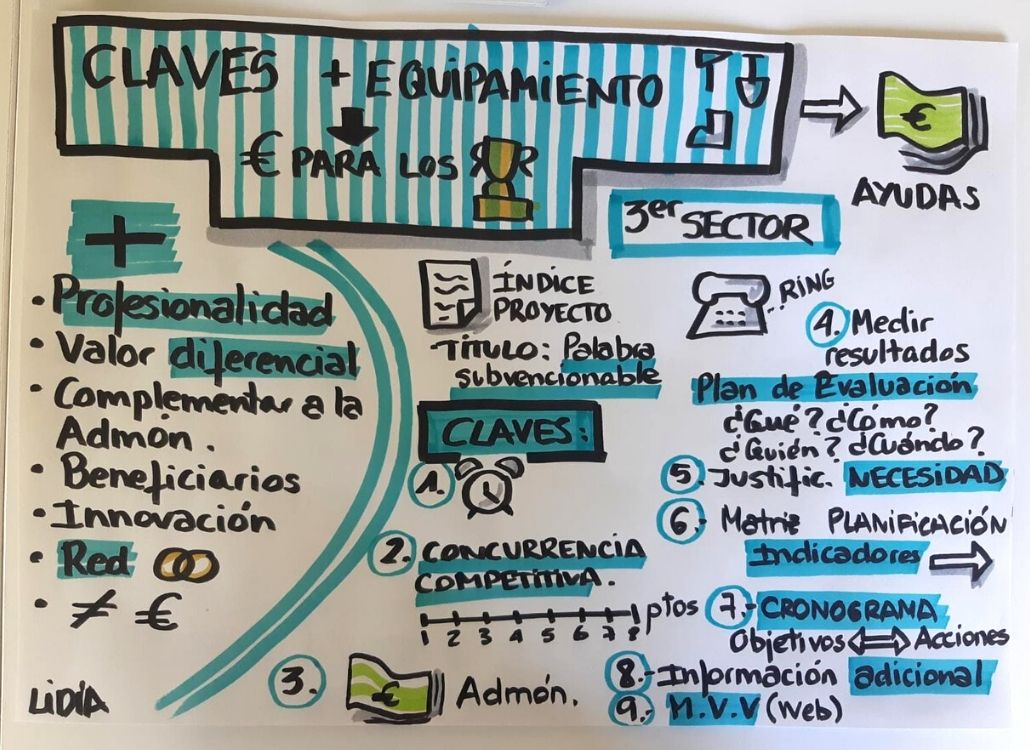 CLAVES + EQUIPAMIENTO
€ PARA LOS
€
AYUDAS
3er SECTOR
+
• Profesionalidad
• Valor diferencial
• Complementar a la
Admón.
• Beneficiarios
• Innovación
• Red
• ≠ €
LiDiA
ÍNDICE
PROYECTO
TÍTULO: Palabra
subvencionable
CLAVES:
1.
2. CONCURRENCIA
COMPETITIVA.
1 2 3 4 5 6 7 8 ptos
3. € Admón.
RING
4. Medir
resultados
Plan de Evaluación
¿Qué? ¿Cómo?
¿Quién? ¿Cuándo?
5. Justific. NECESIDAD
6.- Matriz PLANIFICACIÓN
Indicadores
7.- CRONOGRAMA
Objetivos ⟺ Acciones
8.- Información adicional
9.- M.V.V (Web)